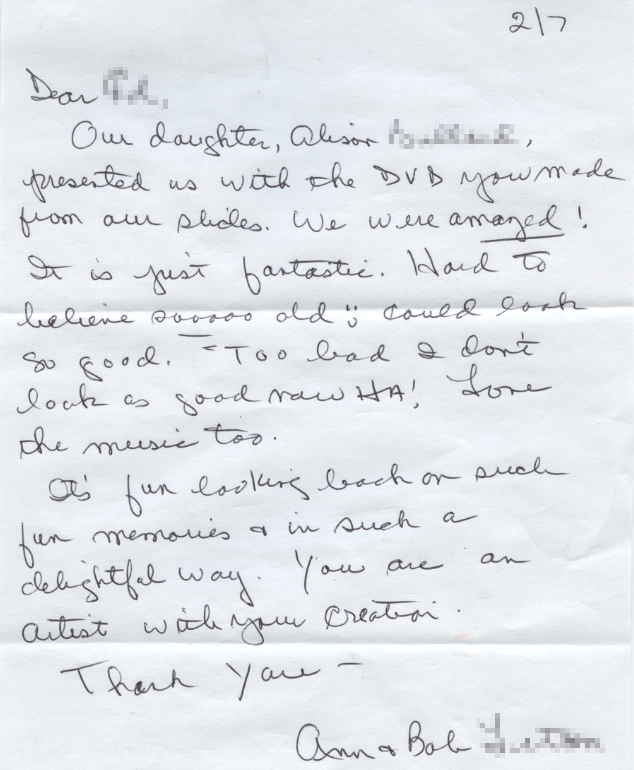 2/7
Dear
Our daughter, Alison
presented us with the DVD you made
from our slides. We were amazed!
It is just fantastic. Hard to
believe sooooo old could look
so good. - Too bad I don't
look as good now HA! Love
the music too.
It's fun looking back on such
fun memories & in such a
delightful way. You are an
artist with your creation.
Thank You -
Ann & Bob